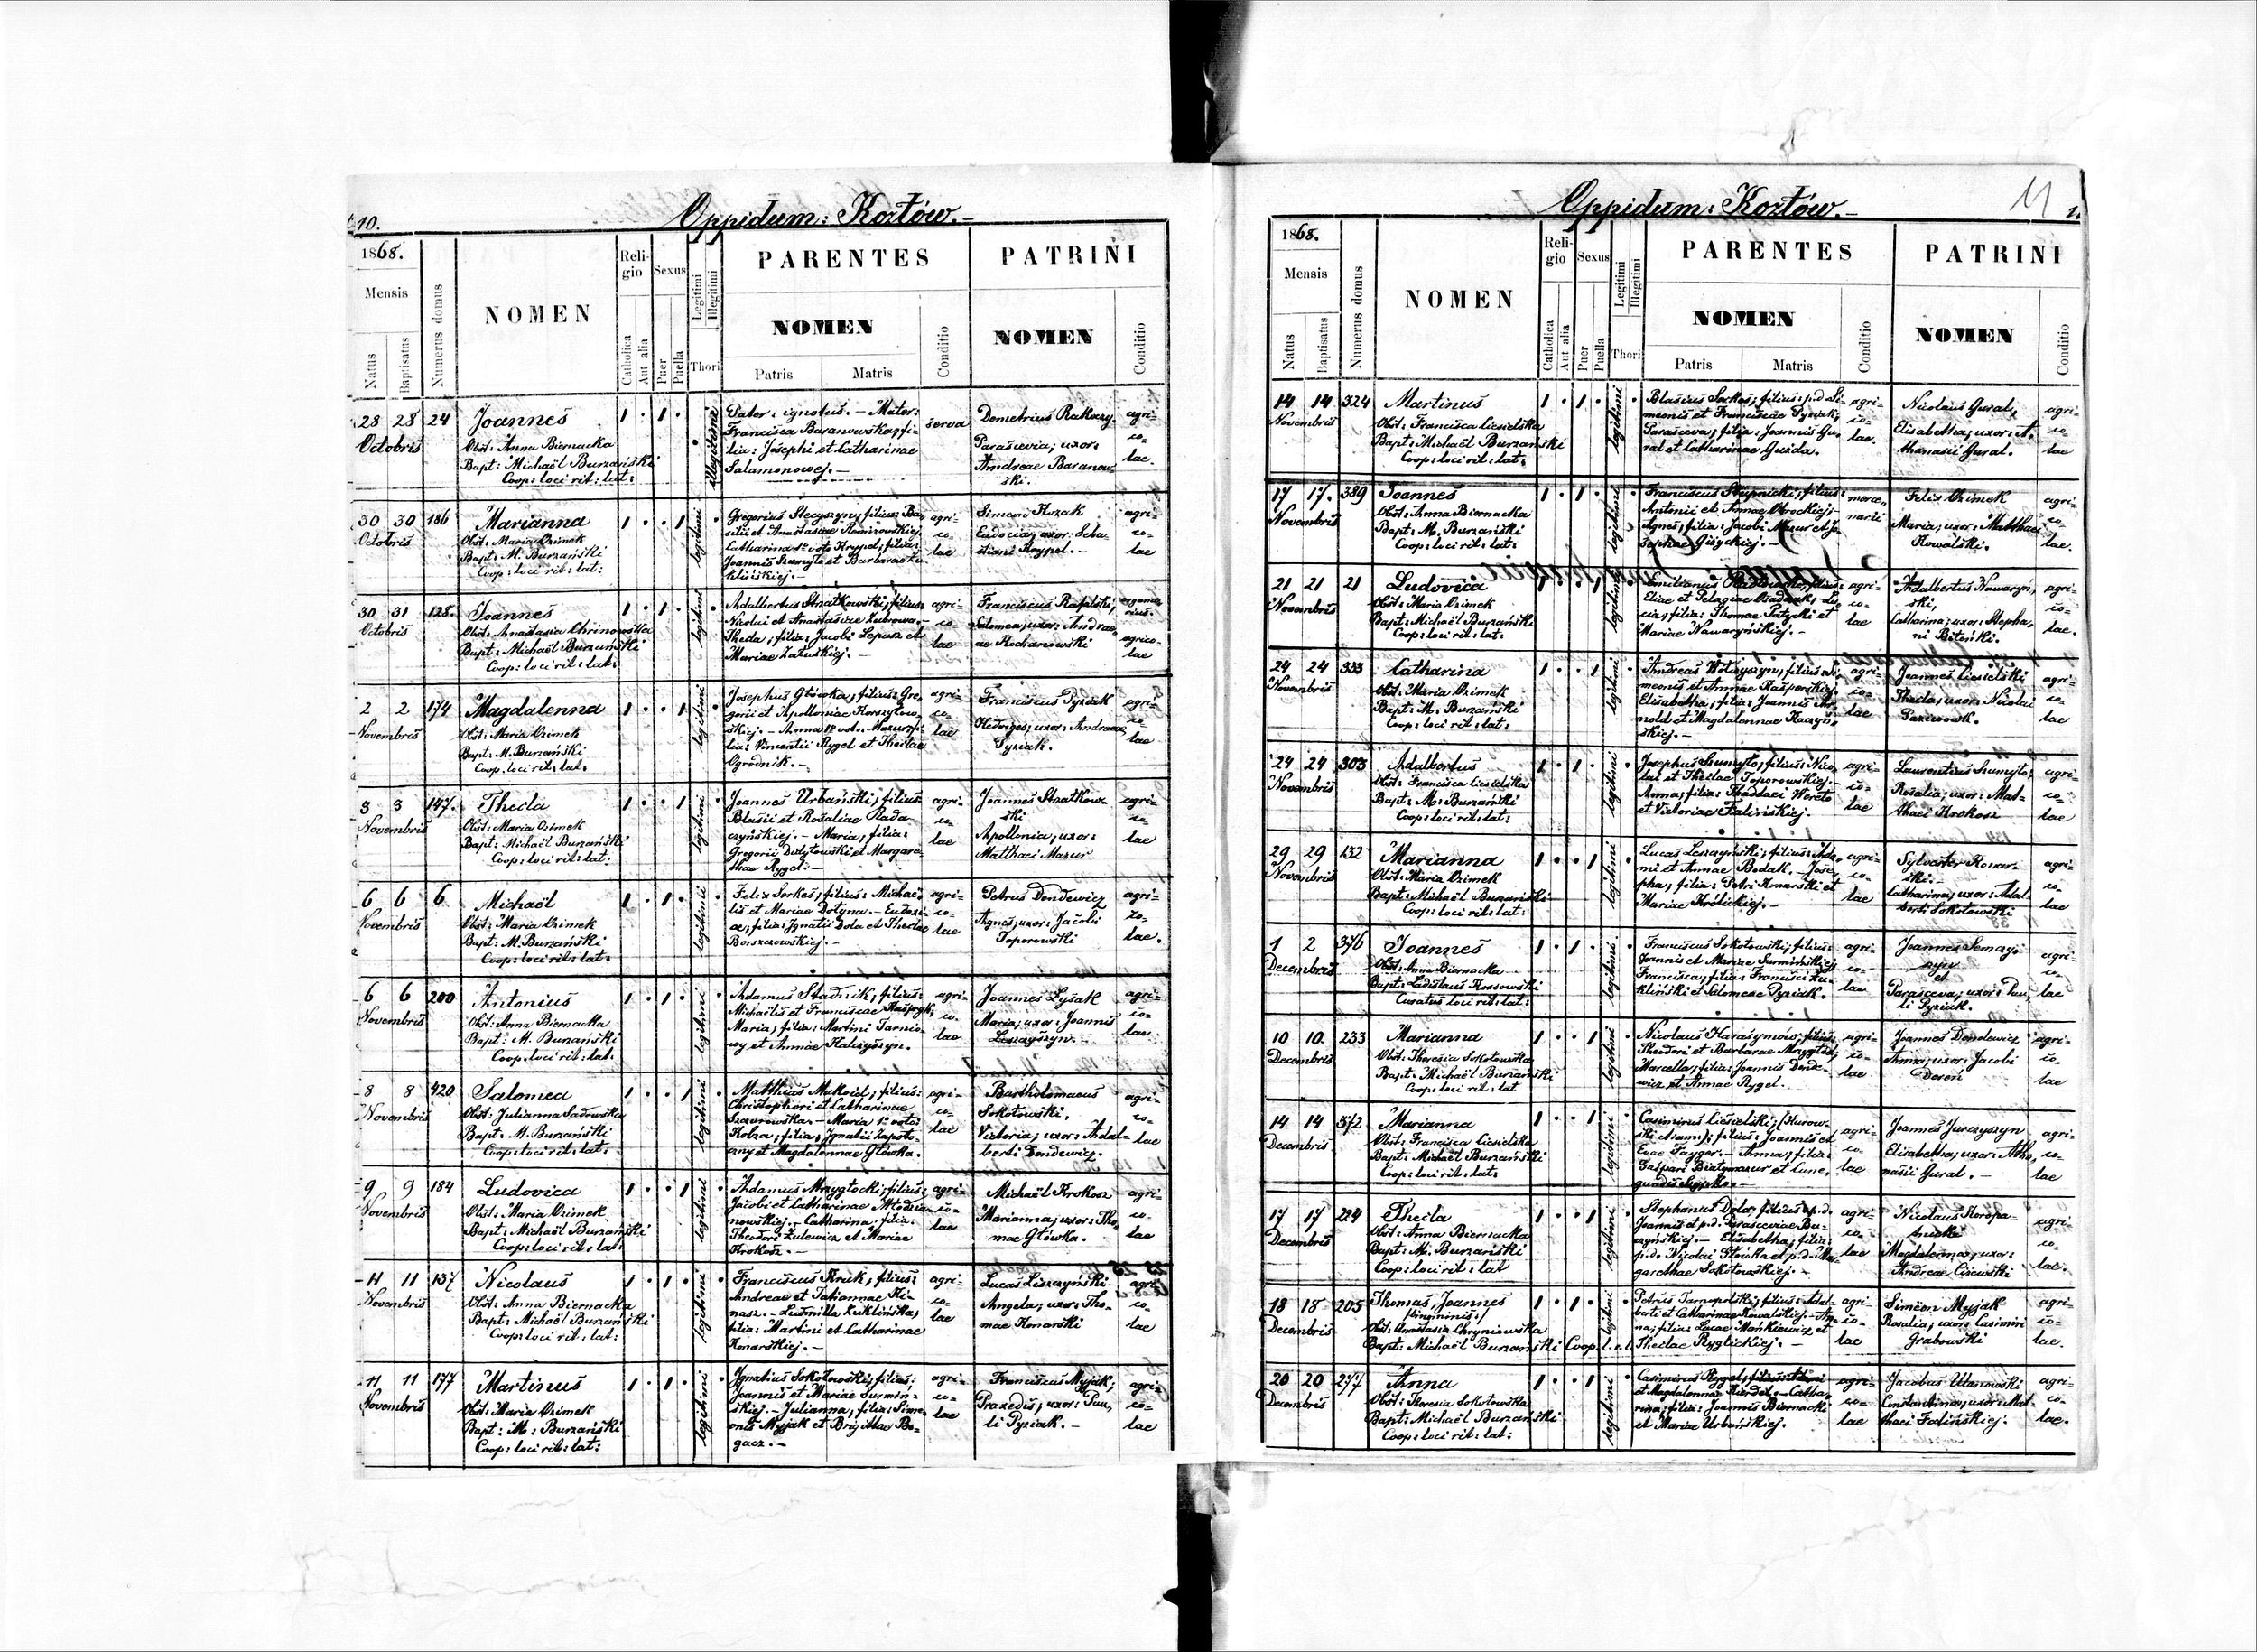 10.
Oppidum: Kozłów.
1868.
Mensis
Natus
Baptisatus
Numerus domus
NOMEN
Religio
Catholica
Aut alia
Sexus
Puer
Puella
Legitimi
Illegitimi
Thori
PARENTES
NOMEN
Patris
Matris
Conditio
PATRINI
NOMEN
Conditio
28 28 24
Octobris
Joannes
Obst: Anna Biernacka
Bapt: Michaël Burzański
Coop: loci rit: lat:
1 · 1 ·
illegitimi
Pater: ignotus. – Mater:
Francisca Baranowska, fi-
lia: Josephi et Catharinae
Salamonowej. –
serva
Demetrius Rakoczy.
Parascevia; uxor:
Andreae Baranow-
ski.
agri-
co-
lae.
30 30 186
Octobris
Marianna
Obst: Maria Ozimek
Bapt: M. Burzański
Coop: loci rit: lat:
legitimi
Gregorius Stecyszyn; filius: Ba-
silii et Anastasiae Remizowskiej.
Catharina 1º voto Krypel, filia:
Joannis Szumyło et Barbarae Zu-
klińskiej. –
agri-
co-
lae
Simeon Kozak
Eudocia; uxor: Seba-
stiani Krypel. –
agri-
co-
lae
30 31 128.
Octobris
Joannes
Obst: Anastasia Chrinowska
Bapt: Michaël Burzański
Coop: loci rit: lat:
legitimi
Adalbertus Stratkowski; filius:
Nicolai et Anastasiae Zubrowa. –
Thecla; filia: Jacobi Lepusz et
Mariae Załuskiej. –
agri-
co-
lae
Franciscus Rafalski,
Salomea; uxor: Andre-
ae Kochanowski
agrico-
lae
2 2 174
Novembris
Magdalenna
Obst: Maria Ozimek
Bapt: M. Burzański
Coop. loci rit: lat:
legitimi
Josephus Główka; filius: Gre-
gorii et Apolloniae Korszyłow-
skiej. – Anna 1º vot: Mazur; fi-
lia: Vincentii Rygel et Theclae
Ogrodnik. –
agri-
co-
lae
Franciscus Pyziak
Hedviges; uxor: Andreae
Pyziak.
agri-
co-
lae
3 3 147.
Novembris
Thecla
Obst: Maria Ozimek
Bapt: Michaël Burzański
Coop: loci rit: lat:
legitimi
Joannes Urbański; filius:
Blasii et Rosaliae Rada-
czyńskiej. – Maria; filia:
Gregorii Dołżytowski et Margare-
thae Rygel. –
agri-
co-
lae
Joannes Stratkow-
ski
Apollonia; uxor:
Matthaei Mazur
agri-
co-
lae
6 6 6
Novembris
Michaël
Obst: Maria Ozimek
Bapt: M. Burzański
Coop: loci rit: lat:
legitimi
Felix Serkes; filius: Michaë-
lis et Mariae Dołyna. – Eudoxi-
a; filia: Ignatii Dola et Theclae
Borszczowskiej. –
agri-
co-
lae
Petrus Dondewicz
Agnes; uxor: Jacobi
Toporowski
agri-
co-
lae.
6 6 200
Novembris
Antonius
Obst: Anna Biernacka
Bapt: M. Burzański
Coop: loci rit: lat:
legitimi
Adamus Stadnik; filius:
Michaëlis et Franciscae Kasprzyk;
Maria; filia: Martini Tarnio-
wy et Annae Halczyszyn.
agri-
co-
lae
Joannes Lysak
Maria; uxor: Joannis
Leszczyszyn. –
agri-
co-
lae
8 8 420
Novembris
Salomea
Obst: Julianna Sadowska
Bapt: M. Burzański
Coop: loci rit: lat:
legitimi
Matthias Mukoid; filius:
Christophori et Catharinae
Szczurowska. – Maria 1º voto:
Kobza; filia: Ignatii Zapoto-
czny et Magdalennae Główka.
agri-
co-
lae
Bartholomaeus
Sokołowski.
Victoria; uxor: Adal-
berti Dondewicz.
agri-
co-
lae
9 9 184
Novembris
Ludovica
Obst: Maria Ozimek
Bapt: Michaël Burzański
Coop: loci rit: lat:
legitimi
Adamus Mrzygłocki; filius:
Jacobi et Catharinae Młodzia-
nowskiej. – Catharina: filia:
Theodori Zulewicz et Mariae
Krokosz. –
agri-
co-
lae
Michaël Krokosz
Marianna; uxor: Tho-
mae Główka.
agri-
co-
lae
11 11 137
Novembris
Nicolaus
Obst: Anna Biernacka
Bapt: Michaël Burzański
Coop: loci rit: lat:
legitimi
Franciscus Kruk; filius:
Andreae et Tatiannae Kli-
nasz. – Ludmilla Zuklińska,
filia: Martini et Catharinae
Konarskiej. –
agri-
co-
lae
Lucas Leszczyński
Angela; uxor: Tho-
mae Konarski
agri-
co-
lae
11 11 177
Novembris
Martinus
Obst: Maria Ozimek
Bapt: M: Burzański
Coop: loci rit: lat:
legitimi
Ignatius Sokołowski; filius:
Joannis et Mariae Surmin-
skiej. – Julianna; filia: Sime-
onis Myjak et Brigittae Bo-
gacz. –
agri-
co-
lae
Franciscus Myjak;
Praxedis; uxor: Pau-
li Pyziak. –
agri-
co-
lae
Oppidum: Kozłów.
11
1868.
Mensis
Natus
Baptisatus
Numerus domus
NOMEN
Religio
Catholica
Aut alia
Sexus
Puer
Puella
Legitimi
Illegitimi
Thori
PARENTES
NOMEN
Patris
Matris
Conditio
PATRINI
NOMEN
Conditio
14 14 324
Novembris
Martinus
Obst: Francisca Ciesielska
Bapt: Michaël Burzański
Coop: loci rit: lat:
legitimi
Blasius Serkes; filius: p.d. Si-
meonis et Franciscae Pyziak;
Parasceva; filia: Joannis Gu-
ral et Catharinae Guzda.
agri-
co-
lae.
Nicolaus Gural,
Elisabetha; uxor: A-
thanasii Gural.
agri-
co-
lae
17 17. 389
Novembris
Joannes
Obst: Anna Biernacka
Bapt: M. Burzański
Coop: loci rit: lat:
legitimi
Franciscus Słupnicki; filius:
Antonii et Annae Ogrockiej;
Agnes; filia: Jacobi Mazur et Jo-
sephae Giżyckiej. –
merce-
narii
Felix Ozimek
Maria; uxor: Matthaei
Kowalski.
agri-
co-
lae.
21 21 21
Novembris
Ludovica
Obst: Maria Ozimek
Bapt: Michaël Burzański
Coop: loci rit: lat:
legitimi
Eliae et Pelagiae
cia; filia: Thomae Patycki et
Mariae Nawaryńskiej. –
agri-
co-
lae
Adalbertus Nawaryń-
ski,
Catharina; uxor: Stepha-
ni Bitoński.
agri-
co-
lae.
24 24 333
Novembris
Catharina
Obst: Maria Ozimek
Bapt: M. Burzański
Coop: loci rit: lat:
legitimi
Andreas Wołczyszyn; filius: Si-
meonis et Annae Kasperskiej.
Elisabetha; filia: Joannis Ar-
nold et Magdalennae Kaczyń-
skiej. –
agri-
co-
lae
Joannes Ciesielski
Thecla; uxor: Nicolai
agri-
co-
lae
24 24 303
Novembris
Adalbertus
Obst: Francisca Ciesielska
Bapt: M: Burzański
Coop: loci rit: lat:
legitimi
Josephus Szumyło; filius: Nico-
lai et Theclae Toporowskiej. –
Anna; filia: Thaddaei Woreto
et Victoriae Falińskiej.
agri-
co-
lae
Laurentius Szumyło;
Rosalia; uxor: Mat-
thaei Krokosz
agri-
co-
lae
29 29 132
Novembris
Marianna
Obst: Maria Ozimek
Bapt: Michaël Burzański
Coop: loci rit: lat:
legitimi
Lucas Leszczyński; filius: Ada-
mi et Annae Bodak. – Jose-
pha; filia: Petri Konarski et
Mariae Królickiej. –
agri-
co-
lae
Sylvester Konar-
ski. –
Catharina; uxor: Adal-
berti Sokołowski
agri-
co-
lae
1 2 376
Decembris
Joannes
Obst: Anna Biernacka
Bapt: Ladislaus Kossowski
Curatus loci rit: lat:
legitimi
Franciscus Sokołowski; filius:
Joannis et Mariae Surmińskiej
Francisca; filia: Francisci Zu-
kliński et Salomeae Pyziak.
agri-
co-
lae
Joannes
et
Parasceva; uxor: Pau-
li Pyziak.
agri-
co-
lae
10 10. 233
Decembris
Marianna
Obst: Theresia Sokołowska
Bapt: Michaël Burzański
Coop: loci rit: lat
legitimi
Nicolaus Harasymów; filius:
Theodori et Barbarae Mrzygłód;
Marcella; filia: Joannis Donde-
wicz et Annae Rygel.
agri-
co-
lae
Joannes Dondewicz
Anna; uxor: Jacobi
Dereń
agri-
co-
lae
14 14 572
Decembris
Marianna
Obst: Francisca Ciesielska
Bapt: Michaël Burzański
Coop: loci rit: lat:
legitimi
Casimirus Ciesielski; (Kurow-
ski etiam); filius: Joannis et
Evae Sayger. – Anna; filia:
Gaspari Białymazur et Cune-
gundis
agri-
co-
lae
Joannes Jurczyszyn
Elisabetha; uxor: Atha-
nasii Gural. –
agri-
co-
lae
17 17 224
Decembris
Thecla
Obst: Anna Biernacka
Bapt: M: Burzański
Coop: loci rit: lat
legitimi
Stephanus Dola; filius: p.d.
Joannis et p.d: Parasceviae Bu-
czyńskiej. – Elisabetha; filia:
p.d. Nicolai Główka et p.d. Mar-
garethae Sokołowskiej. –
agri-
co-
lae
Nicolaus Koropa-
tnicki
Magdalenna; uxor:
Andreae Cisewski
agri-
co-
lae.
18 18 205
Decembris
Thomas, Joannes
(binominis)
Obst: Anastasia Chryniowska
Bapt: Michaël Burzański Coop. l. r. l.
legitimi
Petrus Tarnopolski; filius: Adal-
berti et Catharinae Kowalskiej. – An-
na; filia: Lucae Mańkiewicz et
Theclae Ryglickiej. –
agri-
co-
lae
Simeon Myjak
Rosalia; uxor: Casimiri
Grabowski
agri-
co-
lae.
20 20 277
Decembris
Anna
Obst: Theresia Sokołowska
Bapt: Michaël Burzański
Coop: loci rit: lat:
legitimi
Casimirus Rygel; filius:
et Magdalennae – Catha-
rina; filia: Joannis Biernacki
et Mariae Urbańskiej.
agri-
co-
lae
Jacobus Ulanowski
Constantina; uxor: Mat-
thaei Falińskiej.
agri-
co-
lae.